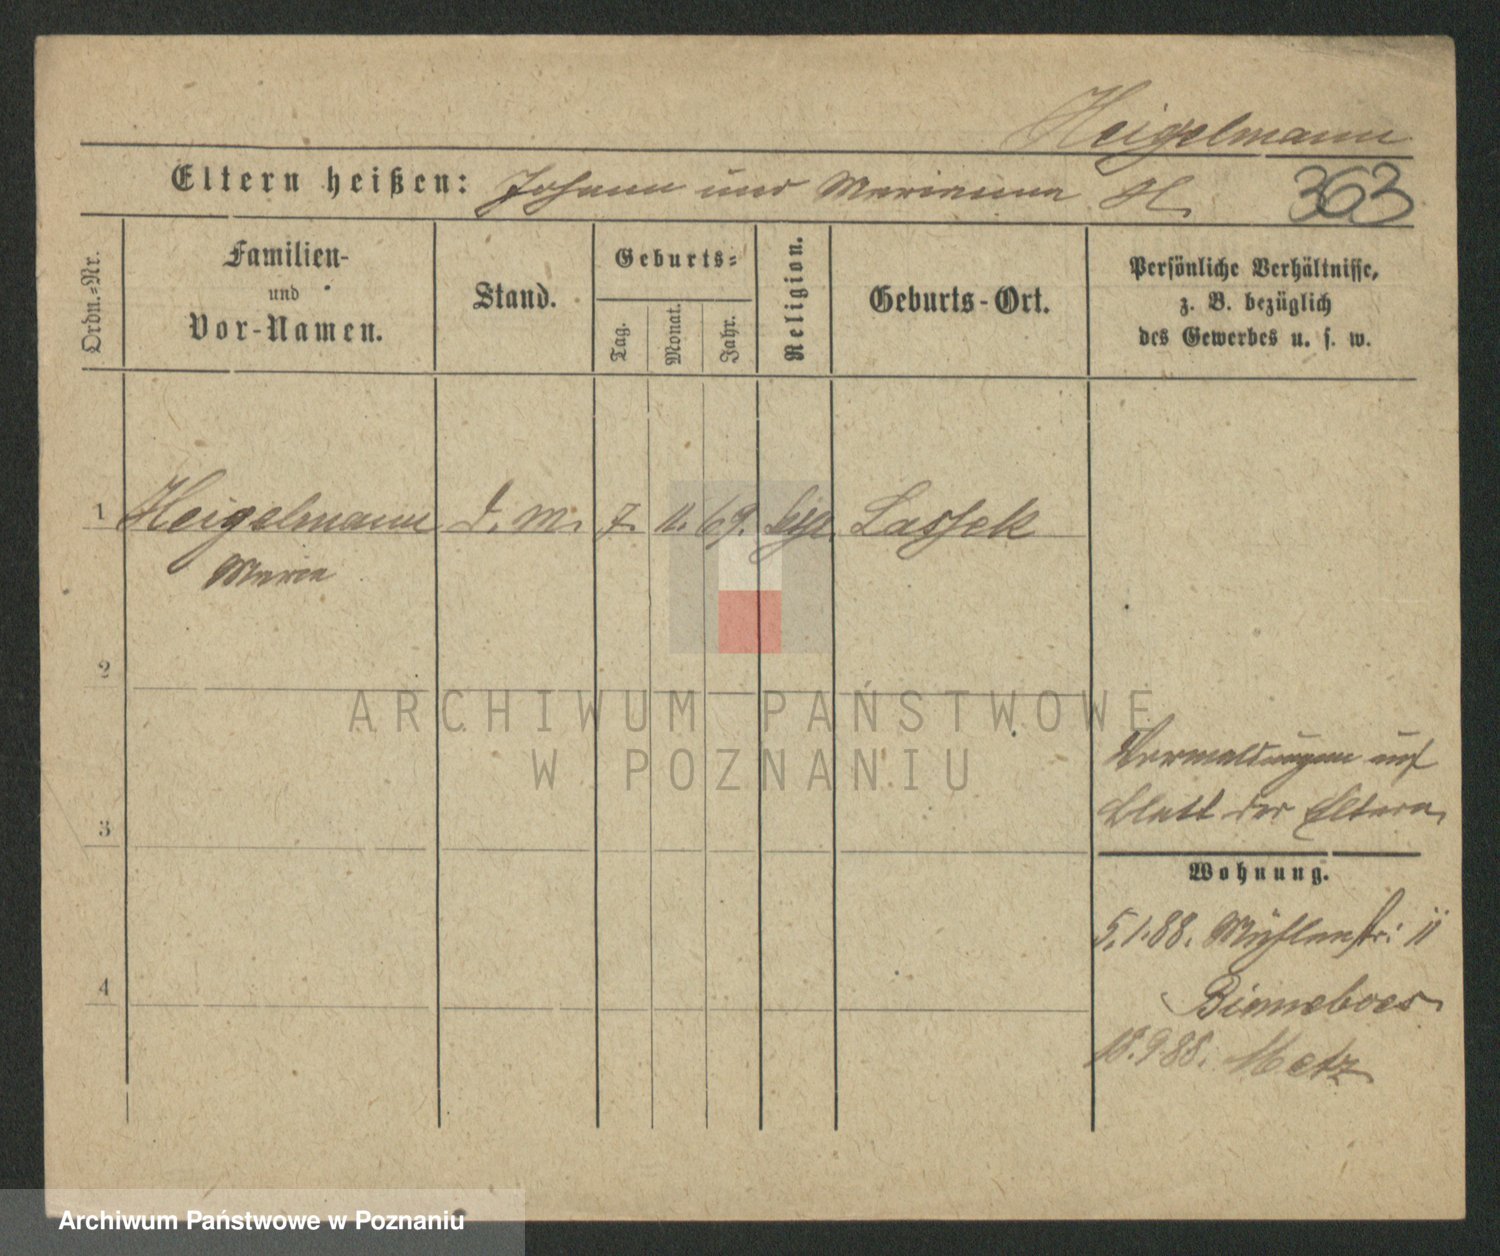 Heigelmann
Eltern heißen: Johann und Marianna H. 363
Ordn.=Nr.
Familien-
und
Vor-Namen.
Stand.
Geburts=
Tag.
Monat.
Jahr.
Religion.
Geburts-Ort.
Persönliche Verhältnisse,
z. B. bezüglich
des Gewerbes u. s. w.
1 Heigelmann d. m. 7. 11. 69. Lassek
Marie
2
ARCHIWUM PAŃSTWOWE
W POZNANIU
auf
3
Blatt der Eltern
Wohnung.
5.1.88. Mühlenstr. 11
4
18.9.88. Metz
Archiwum Państwowe w Poznaniu